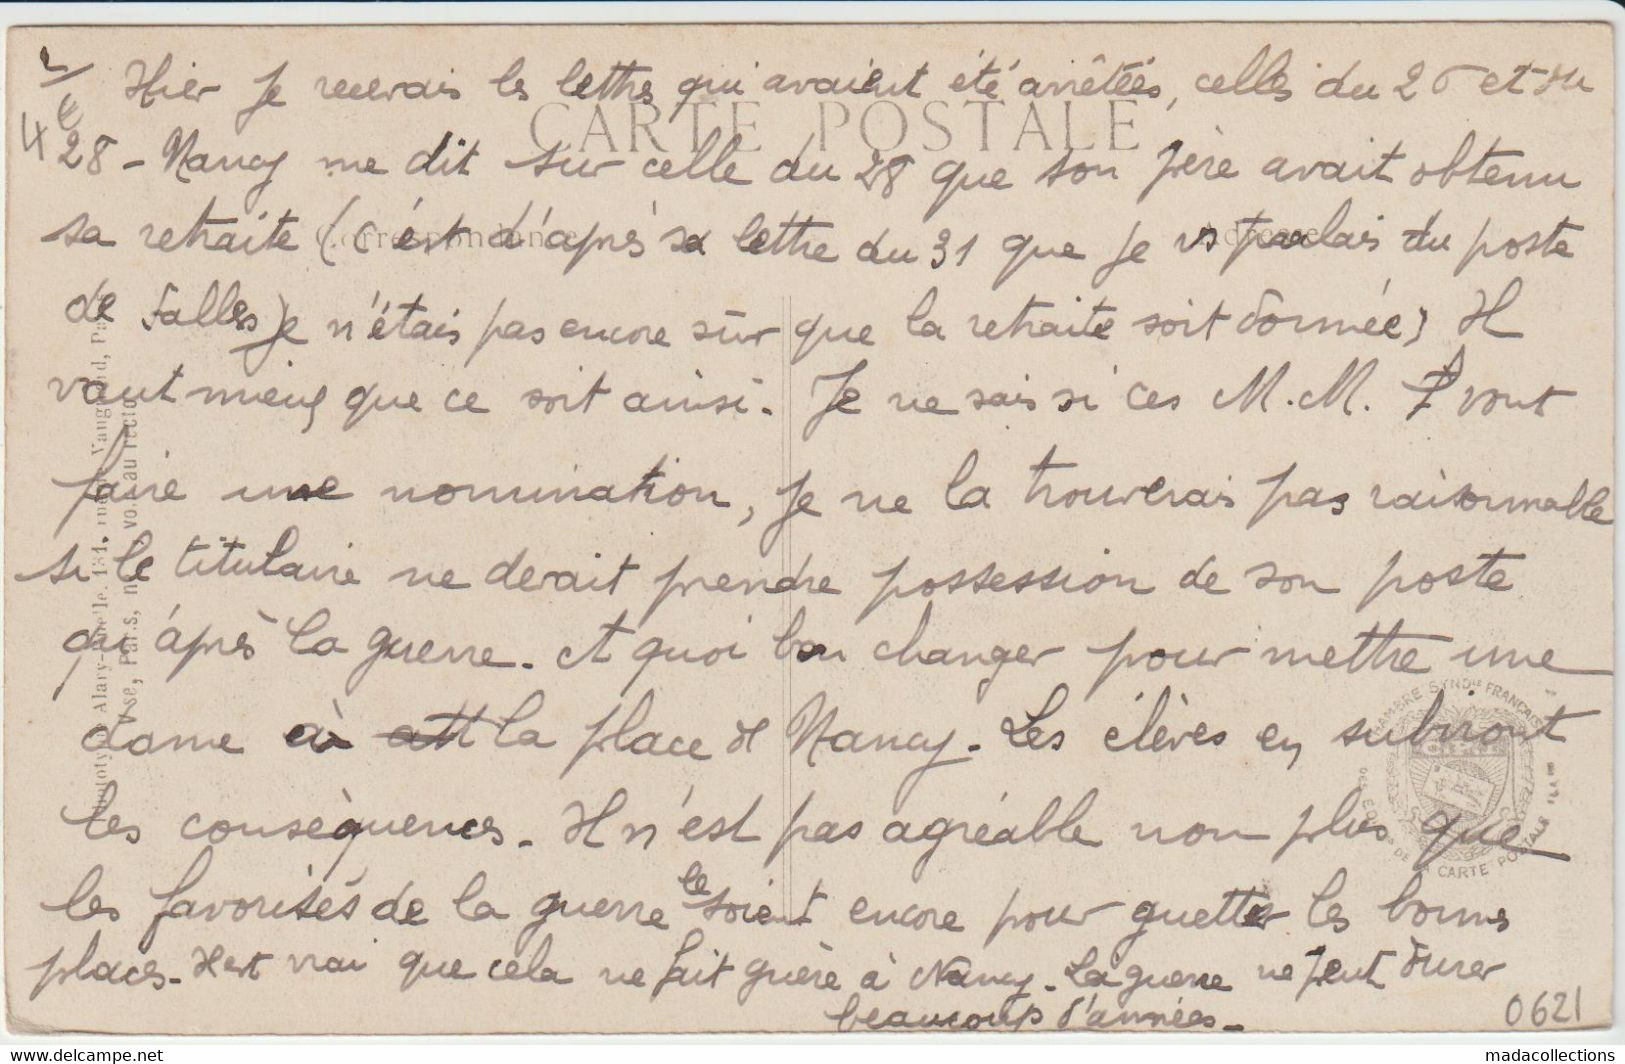 Hier je recevais les lettres qui avaient été arrêtées, celles du 26 et du
CARTE POSTALE
28 - Nancy me dit sur celle du 28 que son père avait obtenu
sa retraite (c'est d'après sa lettre du 31 que je vs parlais du poste
Correspondance
Adresse
de Salles) je n'étais pas encore sûr que la retraite soit donnée) Il
vaut mieux que ce soit ainsi. Je ne sais si ces M.M. vont
faire une nomination, je ne la trouverais pas raisonnable
si le titulaire ne devait prendre possession de son poste
qu'après la guerre. A quoi bon changer pour mettre une
dame à la place de Nancy. Les élèves en subiront
les conséquences. Il n'est pas agréable non plus que
les favorisés de la guerre le soient encore pour guetter les bonnes
places. Il est vrai que cela ne fait guère à Nancy. La guerre ne peut durer
beaucoup d'années.
4€
0621
CHAMBRE SYND^LE FRANÇAISE
DE LA CARTE POSTALE
madacollections